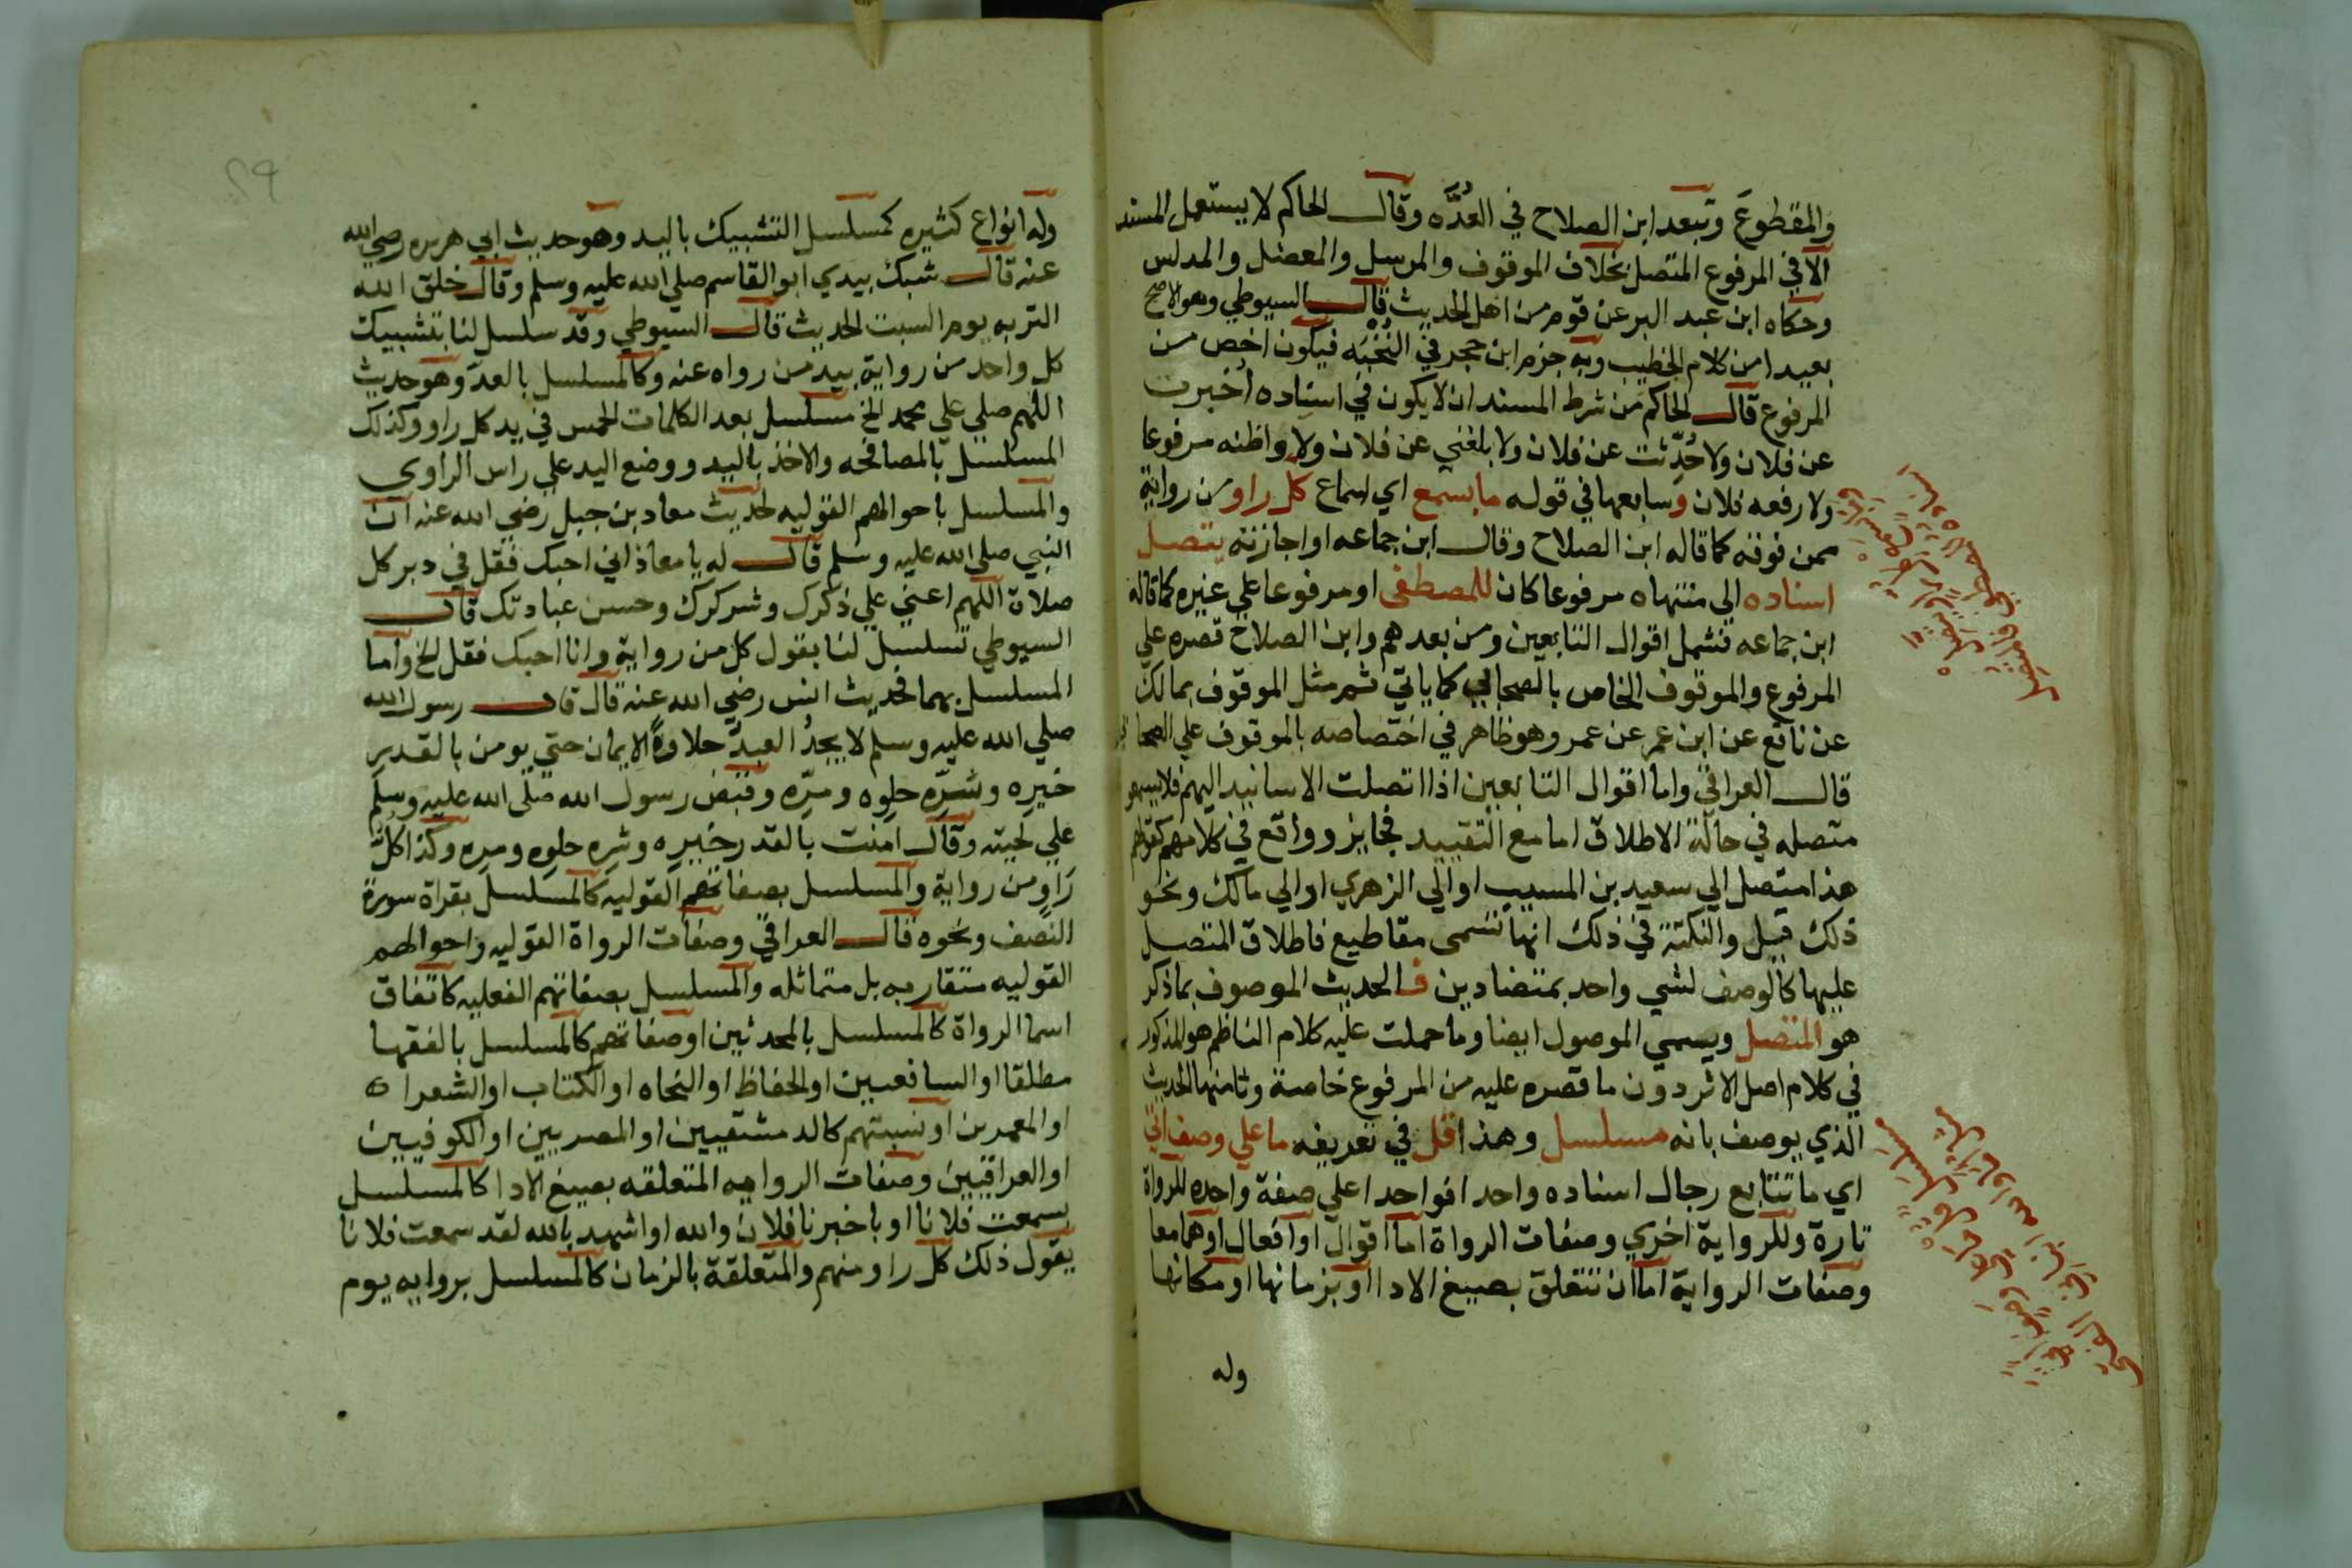 والمقطوع وتبعه ابن الصلاح في العدّه وقال الحاكم لا يستعمل المسند
الا في المرفوع المتصل بخلاف الموقوف والمرسل والمعضل والمدلس
وحكاه ابن عبد البر عن قوم من اهل الحديث قال السيوطي وهو الاصح
بعيدا من كلام الخطيب وبه جزم ابن حجر في النخبه فيكون اخص من
المرفوع قال الحاكم من شرط المسند ان لا يكون في اسناده اُخبرت
عن فلان ولا حُدّثت عن فلان ولا بلغني عن فلان ولا واظنه مرفوعا
ولا رفعه فلان وسابعها في قوله ما بسمع اي اسماع كل راو من رواية
ممن فوقه كما قاله ابن الصلاح وقال ابن جماعه او اجازته يتصل
اسناده الي منتهاه مرفوعا كان للمصطفى او مرفوعا علي غيره كما قاله
ابن جماعه فشمل اقوال التابعين ومن بعدهم وابن الصلاح قصره علي
المرفوع والموقوف الخاص بالصحابي كما ياتي ثم مثل الموقوف بمالك
عن نافع عن ابن عمر عن عمر وهو ظاهر في اختصاصه بالموقوف علي الصحابي
قال العراقي واما اقوال التابعين اذا اتصلت الاسانيد اليهم فلا يسمو
متصله في حالة الاطلاق اما مع التقييد فجايز وواقع في كلامهم كقولهم
هذا متصل الي سعيد بن المسيب او الي الزهري او الي مالك ونحو
ذلك قيل والنكتة في ذلك انها تسمى مقاطيع فاطلاق المتصل
عليها كالوصف لشي واحد بمتضادين فالحديث الموصوف بماذكر
هو المتصل ويسمي الموصول ايضا وما حملت عليه كلام الناظم هو المذكور
في كلام اصل الاثر دون ما قصره عليه من المرفوع خاصة وثامنها الحديث
الذي يوصف بانه مسلسل وهذا قل في تعريفه ما علي وصف اتي
اي ما تتابع رجال اسناده واحدا فواحدا علي صفة واحده للرواة
تارة وللرواية اخري وصفات الرواة اما اقوال او افعال او هما معا
وصفات الرواية اما ان تتعلق بصيغ الادا او بزمانها او مكانها
وله
وله انواع كثيره كمسلسل التشبيك باليد وهو حديث ابي هريره رضي الله
عنه قال شبك بيدي ابو القاسم صلي الله عليه وسلم وقال خلق الله
التربه يوم السبت الحديث قال السيوطي وقد سلسل لنا بتشبيك
كل واحد من رواية بيد من رواه عنه وكالمسلسل بالعدّ وهو حديث
اللهم صلي علي محمد الخ مسلسل بعد الكلمات الخمس في يد كل راو وكذلك
المسلسل بالمصافحه والاخذ باليد ووضع اليد علي راس الراوي
والمسلسل باحوالهم القوليه لحديث معاد بن جبل رضي الله عنه ان
النبي صلي الله عليه وسلم قال له يا معاذ اني احبك فقل في دبر كل
صلاة اللهم اعني علي ذكرك وشركرك وحسن عبادتك قال
السيوطي تسلسل لنا بقول كل من رواية وانا احبك فقل الخ واما
المسلسل بهما فحديث انس رضي الله عنه قال قال رسول الله
صلي الله عليه وسلم لا يجدُ العبدُ حلاوةَ الايمان حتي يومن بالقدر
خيرِه وشرِّه حلوه ومرّه وقبض رسول الله صلى الله عليه وسلم
علي لحيته وقال امنت بالقدر خيره وشره حلوه ومره وكذا كلُّ
رَاوٍ من رواية والمسلسل بصفاتهم القوليه كالمسلسل بقراة سورة
الصف ونحوه قال العراقي وصفات الرواة القوليه واحوالهم
القوليه متقاربه بل متماثله والمسلسل بصفاتهم الفعليه كاتفاق
اسما الرواة كالمسلسل بالمحدثين او صفاتهم كالمسلسل بالفقها
مطلقا او السافعيين او الحفاظ او النحاه او الكتاب او الشعرا ه
او المعمرين او نسبتهم كالدمشقيين او المصريين او الكوفيين
او العراقيين وصفات الروايه المتعلقه بصيغ الادا كالمسلسل
بسمعت فلانا او باخبرنا فلان والله او اشهد بالله لقد سمعت فلانا
يقول ذلك كل راو منهم والمتعلقة بالزمان كالمسلسل بروايه يوم